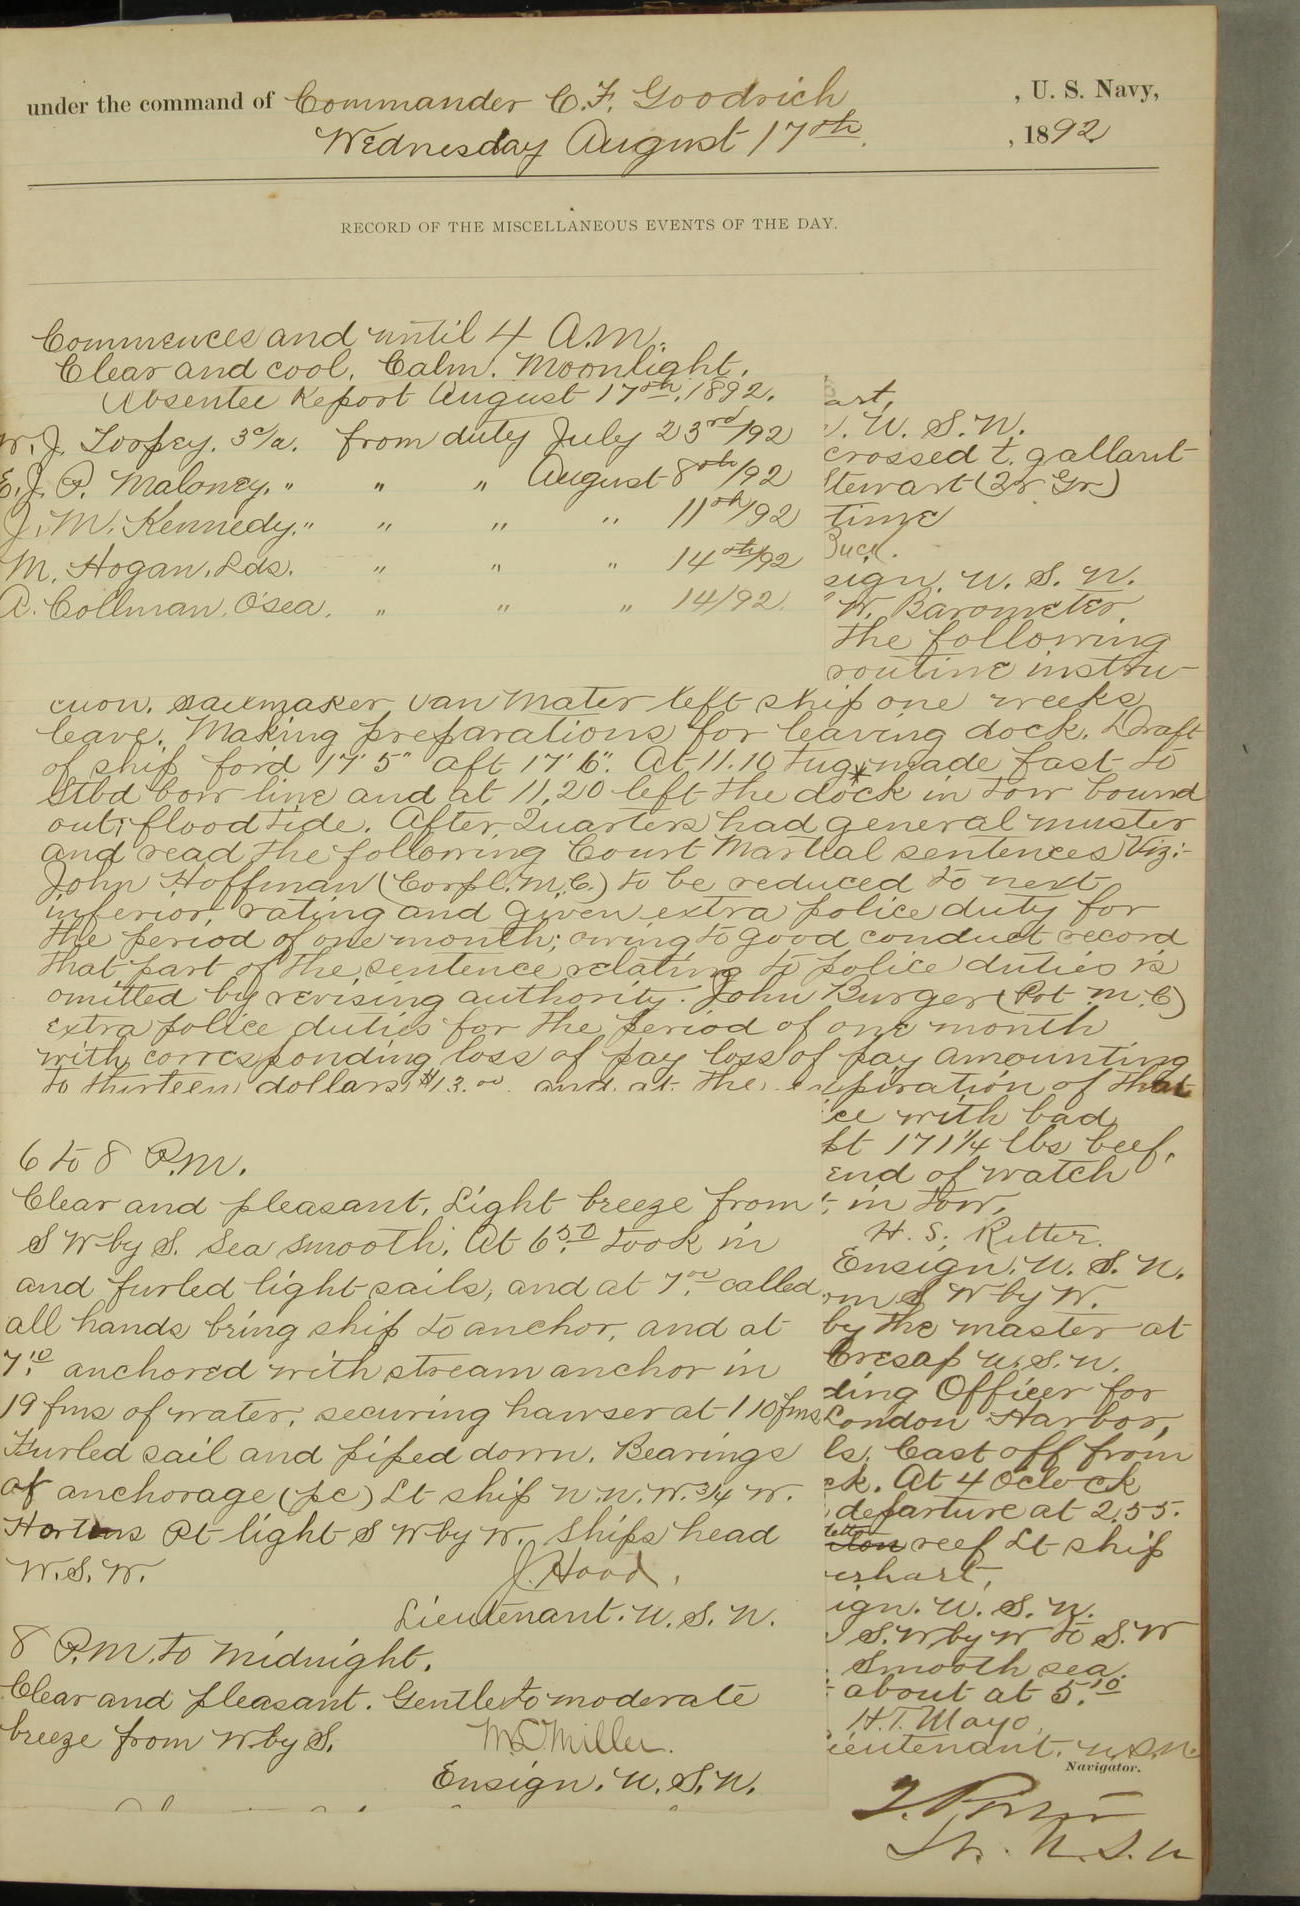 under the command of Commander C. F. Goodrich , U. S. Navy,
Wednesday August 17th. , 1892
RECORD OF THE MISCELLANEOUS EVENTS OF THE DAY.
Commences and until 4 A.M.
Clear and cool. Calm. Moonlight.
Absentee Report August 17th, 1892.
W. J. Toopey. 3c/a. from duty July 23rd/92
E. J. P. Maloney. " " " August 8th/92
J. M. Kennedy. " " " " 11th/92
M. Hogan. Lds. " " " 14th/92
A. Collman. O'sea. " " " 14/92.
art,
. U. S. N.
crossed t. gallant
Stewart (2r Gr)
time
Buck.
sign. U. S. N.
W. Barometer.
the following
routine instru-
cuon. Sailmaker Van Mater left ship one weeks
leave. Making preparations for leaving dock. Draft
of ship for'd 17' 5" aft 17' 6". At 11.10 tug made fast to
Stbd bow line and at 11.20 left the dock in tow bound
out; flood tide. After Quarters had general muster
and read the following Court Martial sentences Viz:-
John Hoffman (Corpl. M. C.) to be reduced to next
inferior rating and given extra police duty for
the period of one month; owing to good conduct record
that part of the sentence relating to police duties is
omitted by revising authority. John Burger (Pvt M. C)
extra police duties for the period of one month
with corresponding loss of pay loss of pay amounting
to thirteen dollars $13.00 and at the expiration of that
ce with bad
pt 171 1/4 lbs beef.
end of watch
in tow.
H. S. Ritter.
Ensign. U. S. N.
om S W by W.
by the master at
Cresap U. S. N.
ding Officer for
London Harbor,
ls. Cast off from
ck. At 4 Oclock
departure at 2.55.
reef Lt ship
erhart,
ign. U. S. N.
S. W by W to S. W
Smooth sea.
about at 5.10
H. T. Mayo,
ieutenant. U. S. N.
Navigator.
6 to 8 P.M.
Clear and pleasant. Light breeze from
S W by S. Sea smooth. At 6.50 took in
and furled light sails, and at 7.00 called
all hands bring ship to anchor, and at
7.10 anchored with stream anchor in
19 fms of water, securing hawser at 110 fms
Furled sail and piped down. Bearings
of anchorage (pc) Lt ship N. N. W. 3/4 W.
Hortons Pt light S W by W. Ships head
W. S. W. J. Hood,
Lieutenant. U. S. N.
8 P.M. to Midnight.
Clear and pleasant. Gentle to moderate
breeze from W by S. M. Miller.
Ensign. U. S. N.
Lt. U. S. N